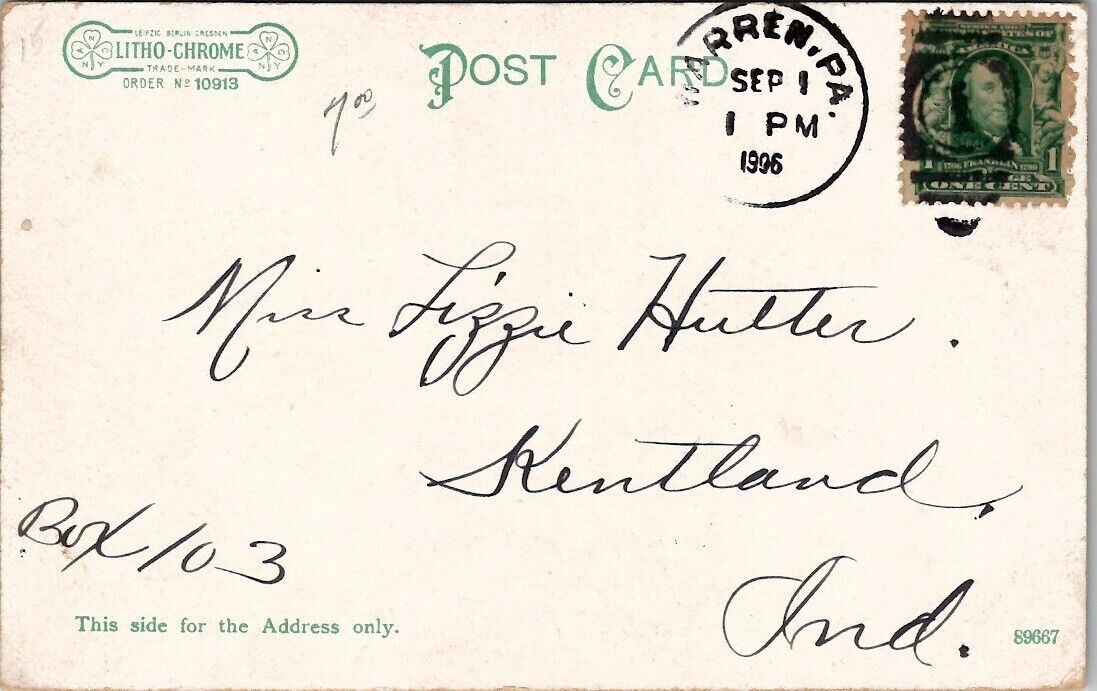 LEIPZIG BERLIN DRESDEN
LITHO-CHROME
TRADE-MARK
ORDER Nº 10913
POST CARD
WARREN, PA.
SEP 1
1 PM
1906
AMERICA
1 FRANKLIN 1
ONE CENT
7.00
Miss Lizzie Hutter.
Kentland,
Box 103
Ind.
This side for the Address only.
89667